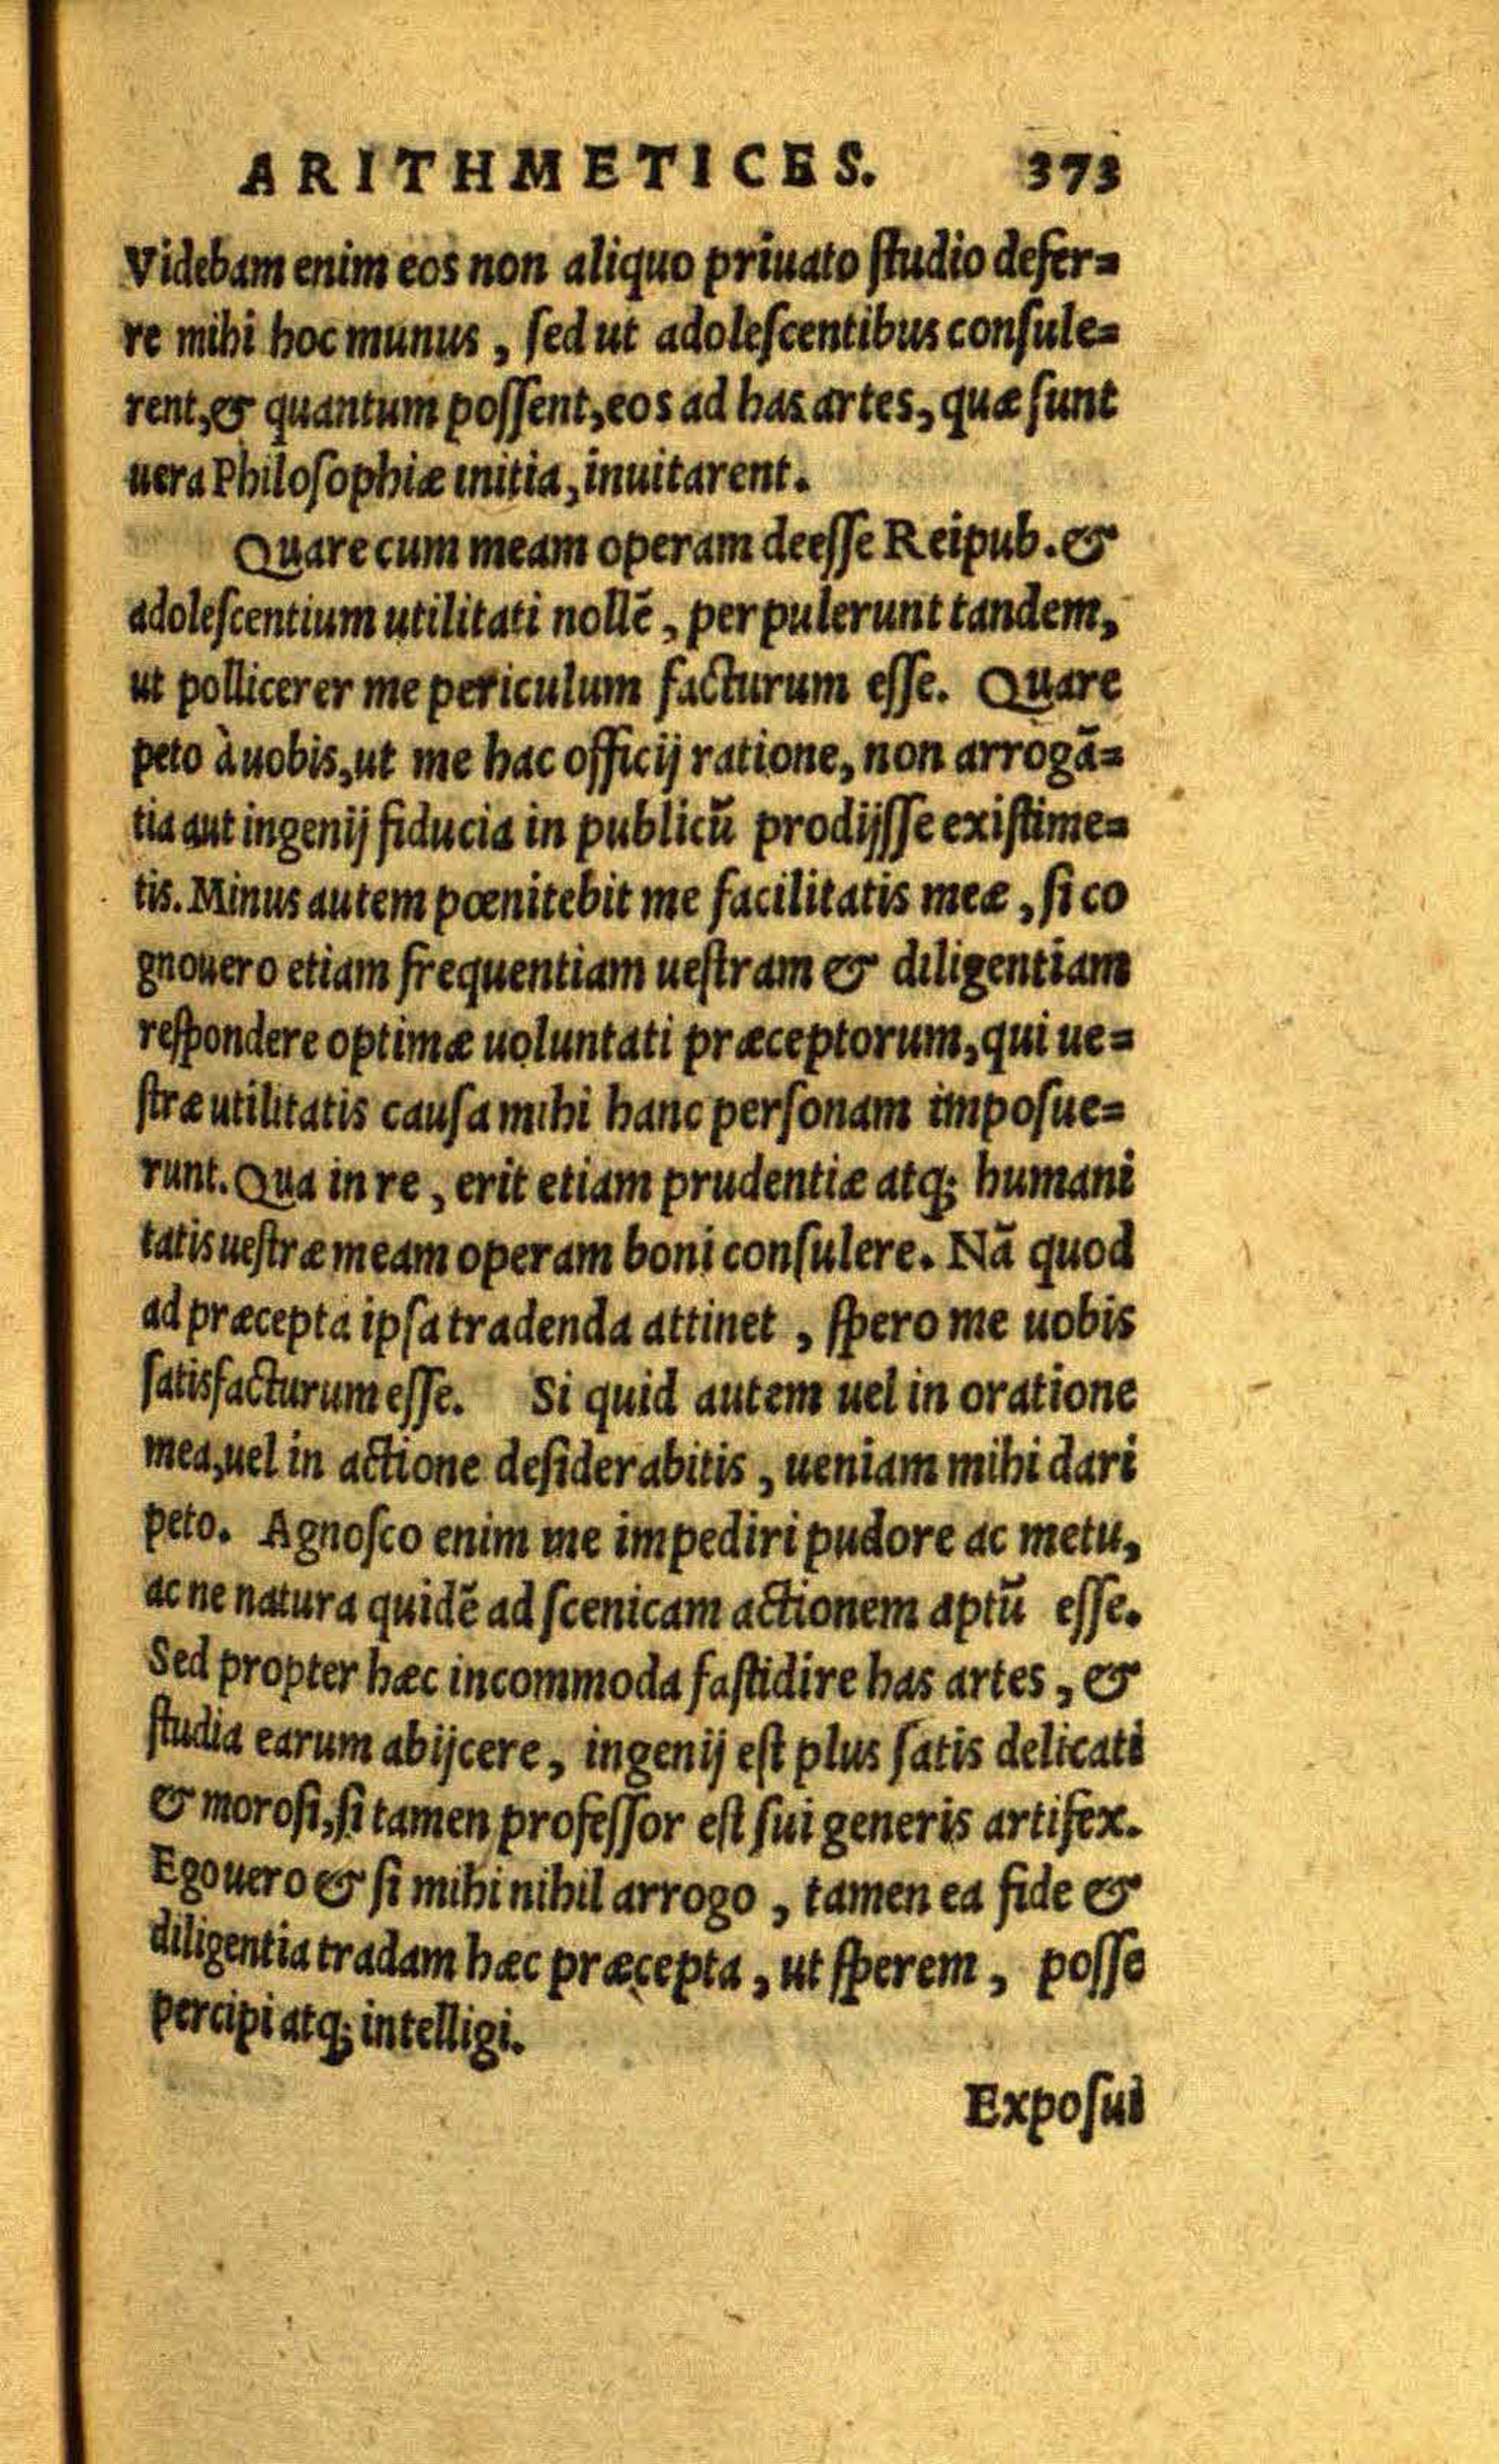 ARITHMETICES. 373
Videbam enim eos non aliquo priuato ſtudio defer=
re mihi hoc munus, ſed ut adoleſcentibus conſule=
rent, & quantum poſſent, eos ad has artes, quæ ſunt
uera Philoſophiæ initia, inuitarent.
Quare cum meam operam deeſſe Reipub. &
adoleſcentium utilitati nollē, perpulerunt tandem,
ut pollicerer me periculum facturum eſſe. Quare
peto à uobis, ut me hac officij ratione, non arrogā=
tia aut ingenij fiducia in publicū prodijſſe exiſtime=
tis. Minus autem pœnitebit me facilitatis meæ, ſi co
gnouero etiam frequentiam ueſtram & diligentiam
reſpondere optimæ uoluntati præceptorum, qui ue=
ſtræ utilitatis cauſa mihi hanc perſonam impoſue=
runt. Qua in re, erit etiam prudentiæ atq; humani
tatis ueſtræ meam operam boni conſulere. Nā quod
ad præcepta ipſa tradenda attinet, ſpero me uobis
ſatisfacturum eſſe. Si quid autem uel in oratione
mea, uel in actione deſiderabitis, ueniam mihi dari
peto. Agnoſco enim me impediri pudore ac metu,
ac ne natura quidē ad ſcenicam actionem aptū eſſe.
Sed propter hæc incommoda faſtidire has artes, &
ſtudia earum abijcere, ingenij eſt plus ſatis delicati
& moroſi, ſi tamen profeſſor eſt ſui generis artifex.
Ego uero & ſi mihi nihil arrogo, tamen ea fide &
diligentia tradam hæc præcepta, ut ſperem, poſſe
percipi atq; intelligi.
Expoſui